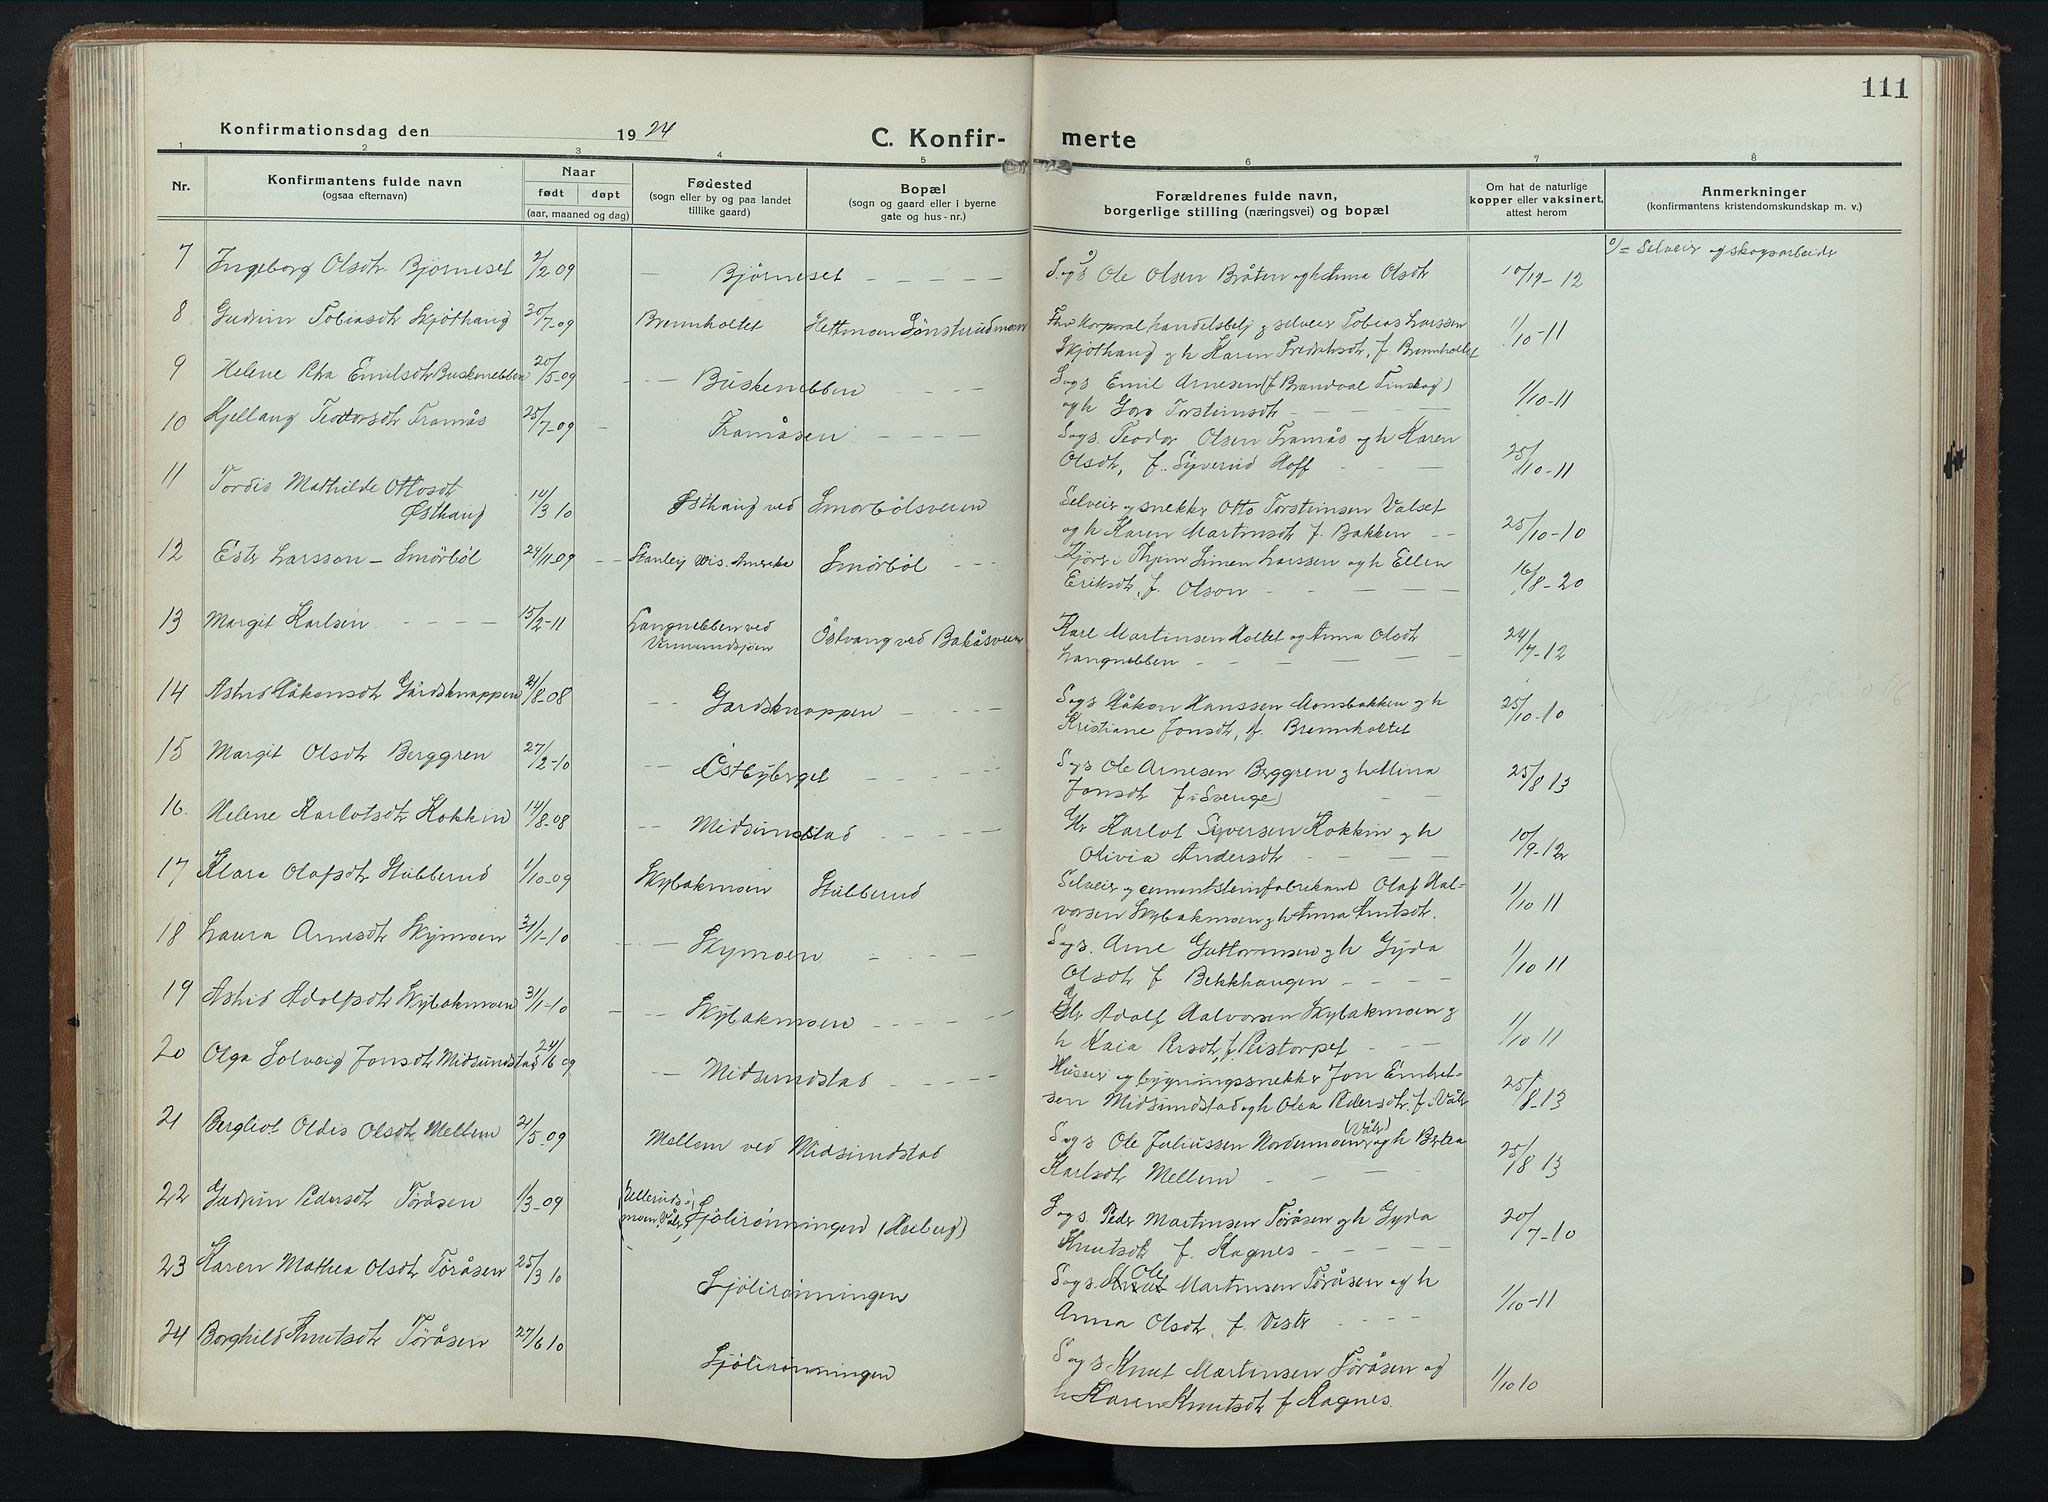 111
Konfirmationsdag den 19 24 C. Konfir- merte
1 2 3 4 5 6 7 8
Nr. Konfirmantens fulde navn (ogsaa efternavn) Naar født døpt (aar, maaned og dag) Fødested (sogn eller by og paa landet tillike gaard) Bopæl (sogn og gaard eller i byerne gate og hus-nr.) Forældrenes fulde navn, borgerlige stilling (næringsvei) og bopæl Om hat de naturlige kopper eller vaksinert, attest herom Anmerkninger (konfirmantens kristendomskundskap m. v.)
º/= Selveier og skogsarbeide
7 Ingeborg Olsdtr Bjørneset 2/2 09 — Bjørneset — — — — — Sogs Ole Olsen Bråten og h Anna Olsdtr 10/12 - 12
8 Gudrun Tobiasdtr Skjøthaug 30/7-09 Brennholtet Hettmoen Sønstrudmoen Fhv korporal handelsbetj og selveier Tobias Larssen 1/10-11
Skjøthaug og h Karen Fredriksdtr, f. Brennholtet
9 Helene Emilsdtr Buskenebben 20/5-09 — — Buskenebben — — — — Sogs Emil Arnesen (f Brandval Finskog) 1/10-11
og h Goro Torsteinsdtr — — — —
10 Kjellaug Teodorsdtr Framås 25/7-09 — Framåsen — — — — Sogs. Teodor Olsen Framås og h Karen 25/10-11
Olsdtr, f. Syverud Hoff — —
11 Tordis Mathilde Ottosdtr
Østhaug 14/3 10 Østhaug ved Smørbølsveien Selveier og snekker Otto Torsteinsen Valset 25/10-10
og h Karen Martinsdtr f. Bakken — —
12 Ester Larsson - Smørbøl 24/11-09 — — Stanley Wis. Amerika Smørbøl — — — Simen Larssen og h Ellen 16/8-20
Eriksdtr, f. Olson — — — —
13 Margit Karlsen — — — — 15/2-11 Langnebben ved
Vermundsjøen Østvang ved Bakåsveien Karl Martinsen Holtet og Anna Olsdtr 24/7-12
Langnebben — — — — —
14 Astrid Håkonsdtr Gårdsknappen 21/8-08 — — Gardsknappen — — — Sogs Håkon Hanssen Monsbakken og h 25/10-10
Kristiane Jonsdtr, f. Brennholtet
15 Margit Olsdtr Berggren 27/2-10 — — Østbyberget — — — — Sogs Ole Arnesen Berggren og h Mina 25/8 13
Jonsdtr f i Sverige) — —
16. Helene Karlotsdtr Kokkin 14/8-08 — — Midsundstad — — — — — Karlot Syversen Kokkin og h 10/9-12
Olivia Andersdtr — — — —
17 Klara Olafsdtr Stubberud 1/10-09 Skybakmoen Stubberud Selveier og cementsteinfabrikant Olaf Hal-
vorsen Skybakmoen og h Anna Knutsdtr. 1/10 11
18 Laura Arnesdtr Skymoen 31/1-10 — — Skymoen — — — — Sogs. Arne Guttormsen og h Gyda 1/10 11
Olsdtr f Bekkhaugen — — — —
19 Astrid Adolfsdtr Skybakmoen 31/1-10 — — Skybakmoen — — — — — Adolf Halvorsen Skybakmoen og 1/10 11
h Kaia Persdtr, f. Peistorpet —
20 Olga Solveig Jonsdtr Midsundstad 24/6 09 — — Midsundstad — — — — — Huseier og bygningssnekker Jon Embret- 25/8-13
sen Midsundstad og h Olea Pedersdtr. f. i Våler
21 Bergliot Oldis Olsdtr Mellem 21/5-09 Mellem ved Midsundstad Sogs Ole Juliussen Nordermoen (Våler) og h Bertea 25/8 13
Karlsdtr Mellem — — — —
22 Gudrun Pedersdtr Tøråsen 1/3-09 (Ullerudsmoen, Våler) Sjølirønningen (Heberg) Sogs Peder Martinsen Tøråsen og h Gyda 20/7-10
Knutsdtr f. Kagnes — — — —
23 Karen Mathea Olsdtr Tøråsen 25/3 10 Sjølirønningen Sogs. Ole Martinsen Tøråsen og h 1/10-11
Anna Olsdtr, f. Vester — — — —
24 Borghild Knutsdtr Tøråsen 27/6 10 Sjølirønningen Sogs Knut Martinsen Tøråsen og 1/10 10
h Karen Knutsdtr f Kagnes.